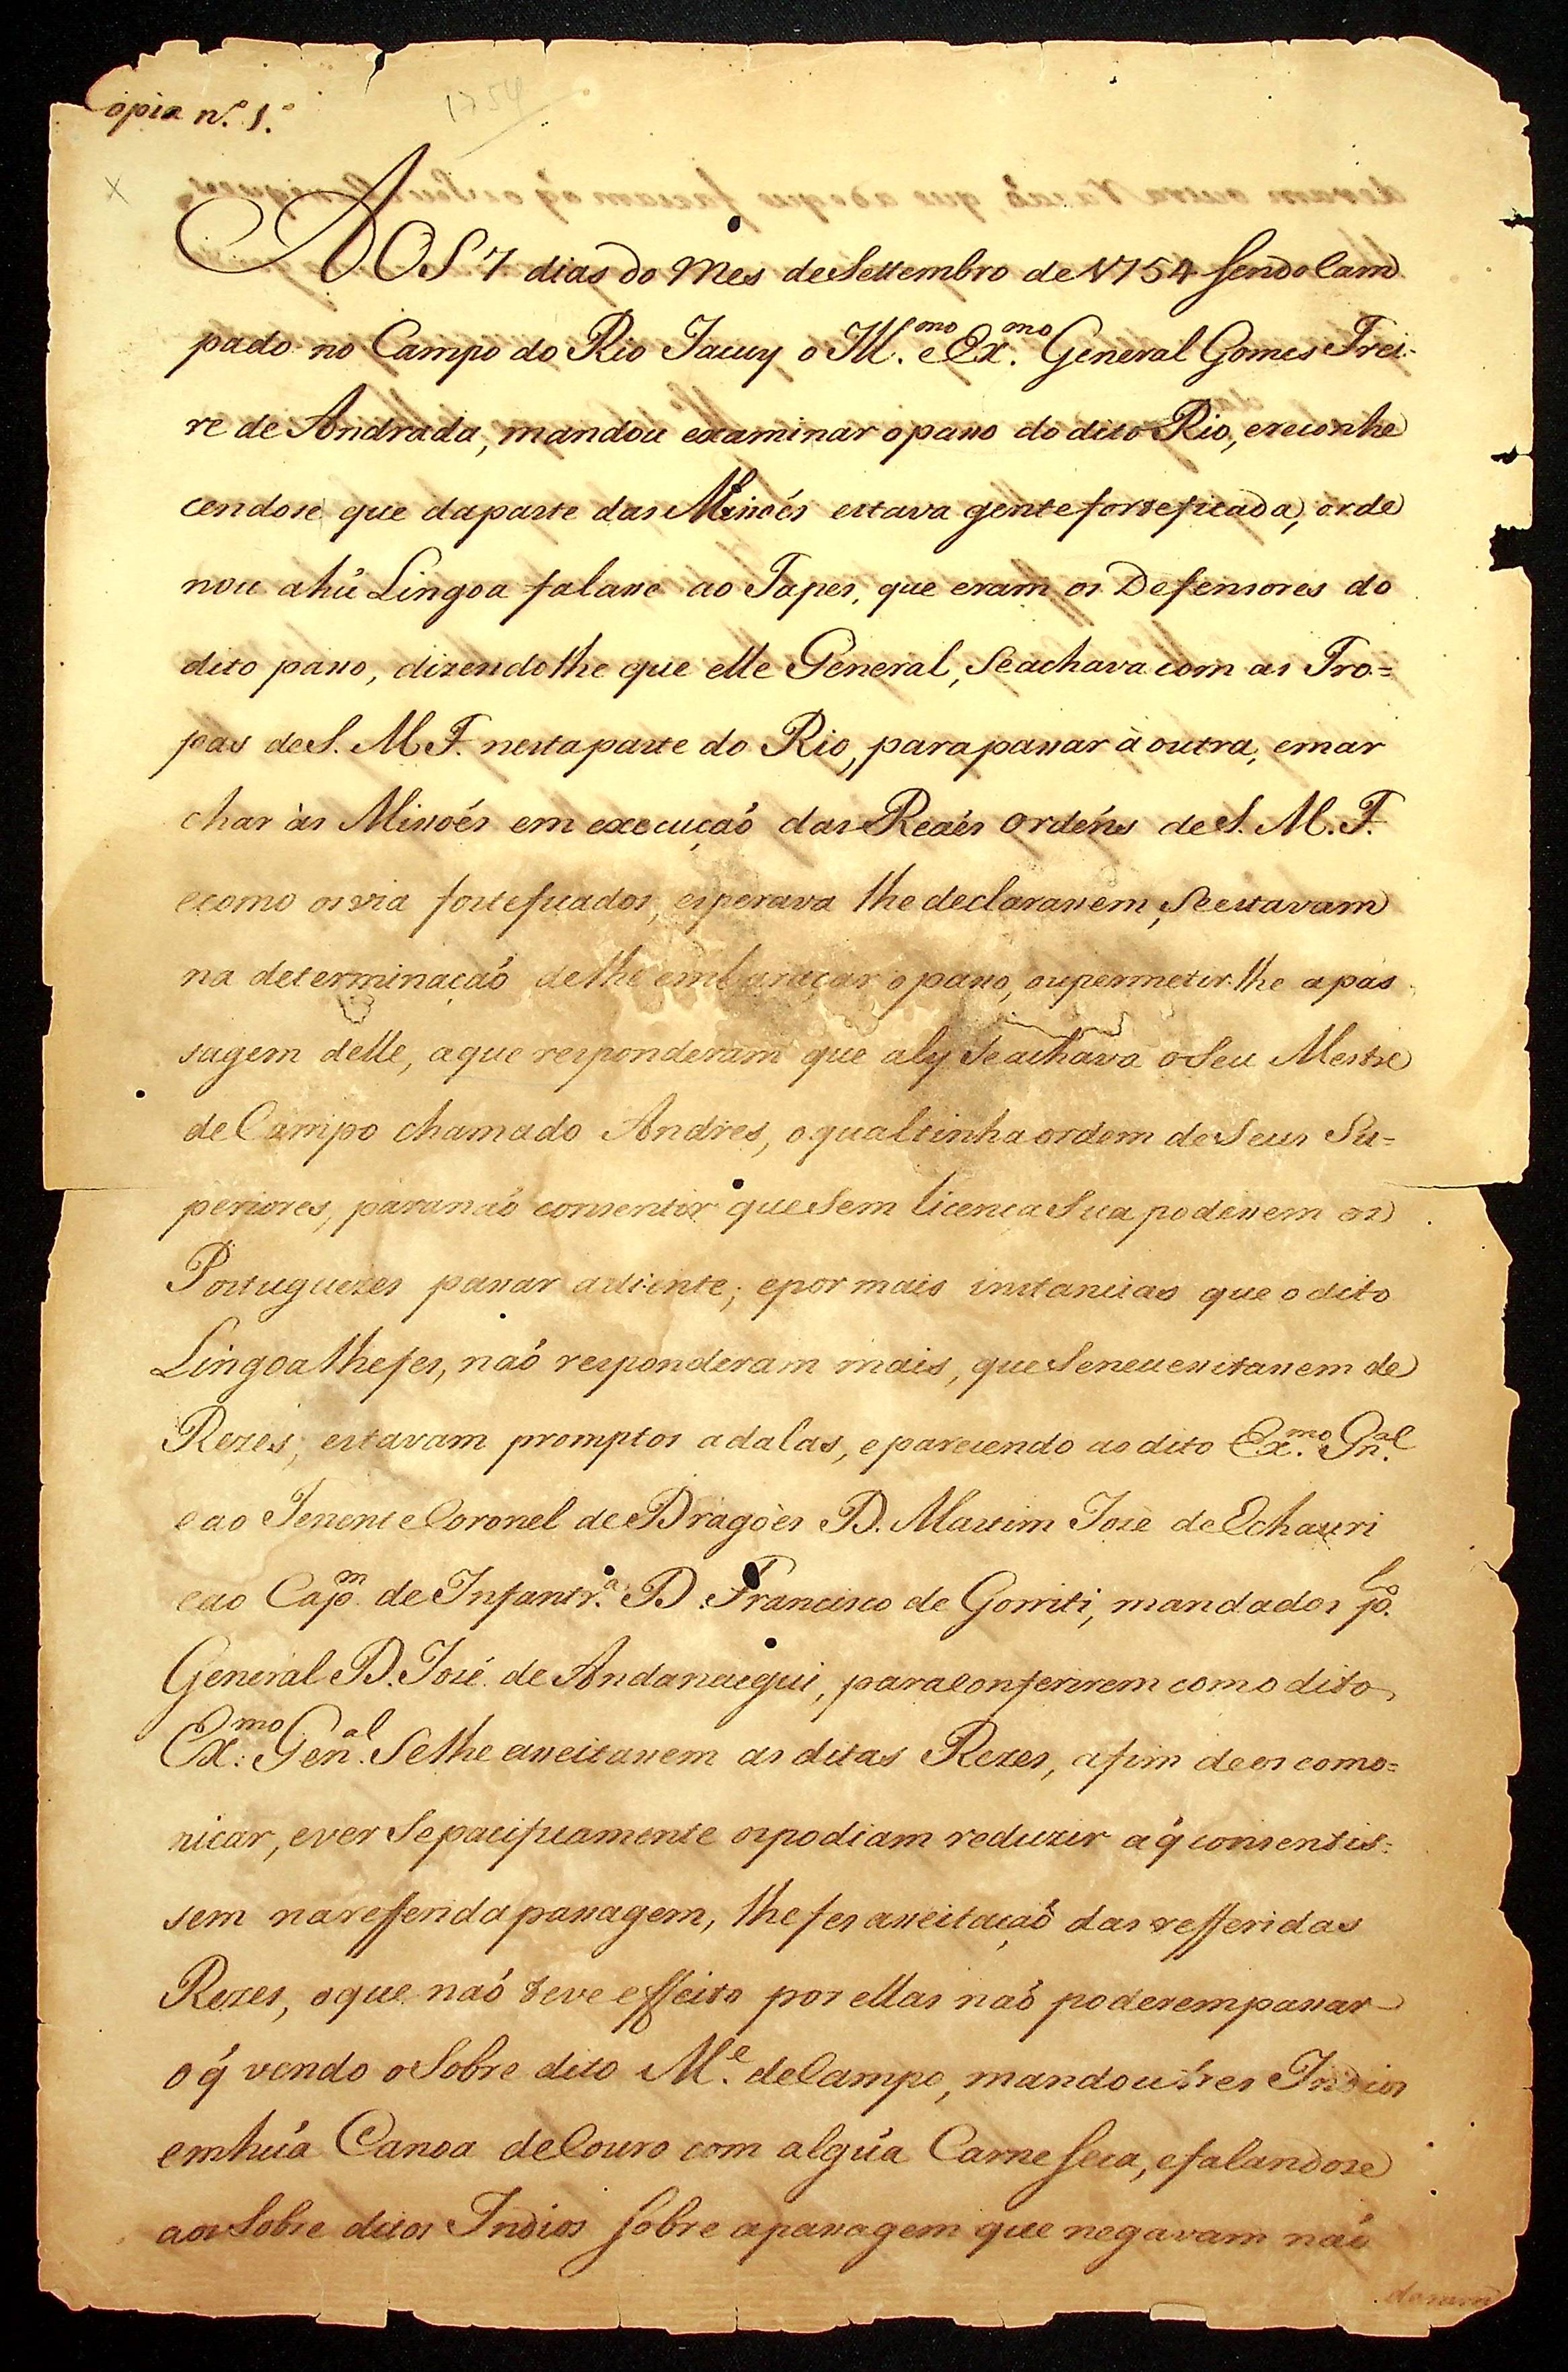 Copia n.º 1.º
1754
AOS 7 dias do Mes de Settembro de 1754 sendo Cam
pado no Campo do Rio Jacuy o Ill.mo e Ex.mo General Gomes Frei-
re de Andrada, mandou examinar o passo do dito Rio, e reconhe
cendose que da parte das Missoés estava gente forteficada, orde
nou a hũ Lingoa falasse ao Tapes, que eram os Defensores do
dito passo, dizendolhe que elle General, se achava com as Tro=
pas de S. M. F. nesta parte do Rio, para passar à outra, e mar
char às Missoés em execuçaó das Reaés ordéns de S. M. F.
e como os via fortefıcados, esperava lhe declarassem, se estavam
na determinaçaó de lhe embaraçar o passo, ou permetir lhe a pas
sagem delle, a que responderam que aly se achava o seu Mestre
de Campo chamado Andres, o qual tinha ordem de seus Su=
periores, para naó consentir que sem licenca sua podessem os
Portuguezes passar adiente; e por mais instancias que o dito
Lingoa lhe fes, naó responderam mais, que se necessitassem de
Rezes, estavam promptos a dalas, e parecendo ao dito Ex.mo Gn.al
e ao Tenente Coronel de Dragoès D. Martim José de Echauri
e ao Cap.m de Infantr.a D. Francisco de Gorriti, mandados p.lo
General D. José de Andanaegui, para conferirem com o dito
Ex.mo Gen.al se lhe asseitassem as ditas Rezes, a fim de os como=
nicar, e ver se pacificamente os podiam reduzir a q̃ consentis=
sem na refferida passagem, lhe fes asseitaçaõ das refferidas
Rezes, o que naó teve effeito por ellas naó poderem passar
o q̃ vendo o sobre dito M.e de Campo, mandou tres Indios
em hũa Canoa de Couro com algũa Carne seca, e falandose
aos sobre ditos Indios sobre a passagem que negavam naó
deram